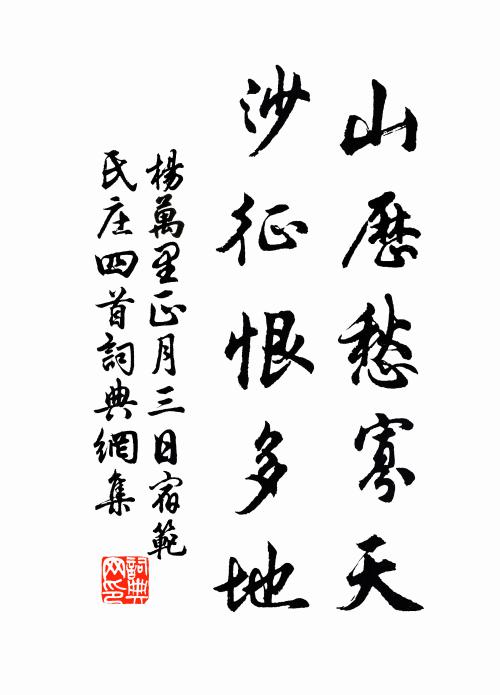 山歷愁寡天
沙征恨多地
楊萬里正月三日宿範
氏庄四首詞典網集
詞典
网印